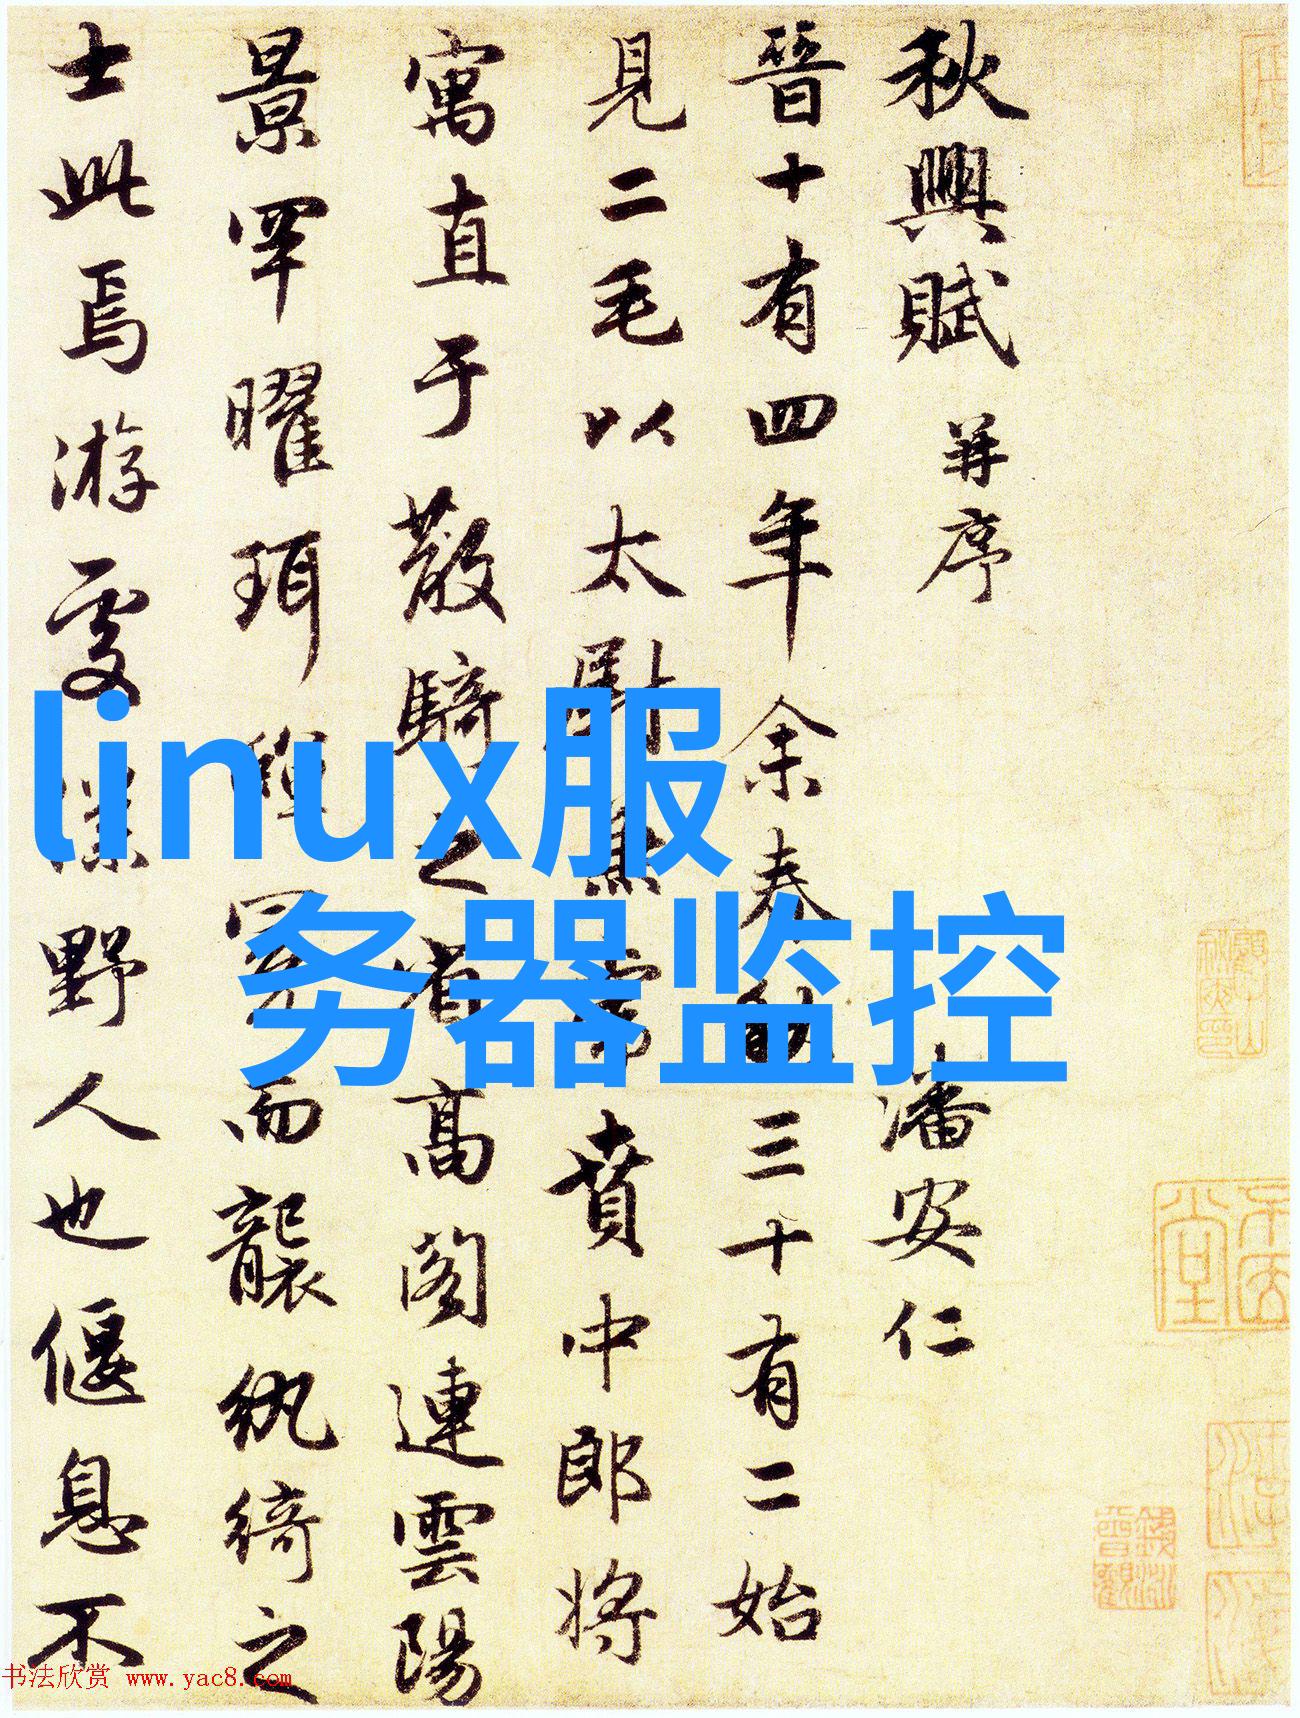 秋興賦 并序
潘安仁
晉十有四年余春秋三十有二始
見二毛以太尉掾兼虎賁中郎將
寓直于散騎之省高閣連雲陽
景罕曜珥蟬冕而襲紈綺之
士此焉游處僕野人也偃息不
linux服
务器监控
书法欣赏 www.yac8.com